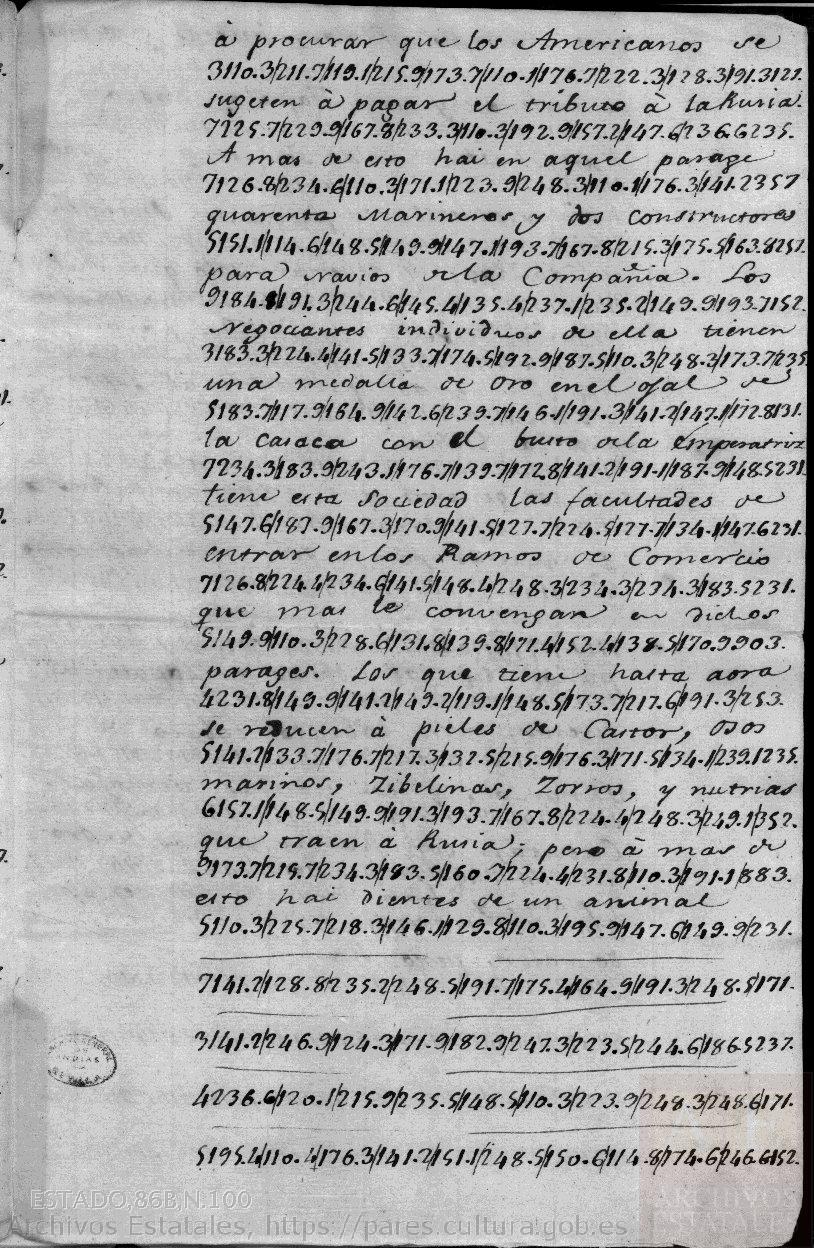 à procurar que los Americanos se
3110.3/211.7/119.1/215.9/173.7/110.1/176.7/222.3/128.3/91.3121.
sugeten à pagar el tributo à la Rusia.
7225.7/229.9/167.8/233.3/110.3/192.9/157.2/147.6/236.6235.
A mas de esto hai en aquel parage
7126.8/234.6/110.3/171.1/223.9/248.3/110.1/176.3/141.2357
quarenta Marineros, y dos constructores
5151.1/114.6/148.5/149.9/147.1/193.7/167.8/215.3/175.5/163.8251.
para navios de la Compañia. Los
9184.8/191.3/244.6/145.4/135.4/237.1/235.2/149.9/193.7152.
Negociantes individuos de ella tienen
3183.3/224.4/141.5/133.7/174.5/192.9/187.5/110.3/248.3/173.7/235
una medalla de oro en el ojal de
5183.7/117.9/164.9/142.6/239.7/146.1/191.3/141.2/147.1/172.8131.
la casaca con el busto de la Emperatriz
7234.3/183.9/243.1/176.7/139.7/172.8/141.2/191.1/187.9/148.5231
tiene esta Sociedad las facultades de
5147.6/187.9/167.3/170.9/141.5/127.7/224.5/177.7/134.1/147.6231.
entrar en los Ramos de Comercio
7126.8/224.4/234.6/141.5/148.4/248.3/234.3/234.3/183.5231.
que mas le convengan en dichos
5149.9/110.3/228.6/131.8/139.8/171.4/152.4/138.5/170.9903.
parages. Los que tiene hasta aora
4231.8/149.9/141.2/149.2/119.1/148.5/173.7/217.6/191.3/253.
se reducen à pieles de Castor, osos
5141.2/133.7/176.7/217.3/132.5/215.9/176.3/171.5/134.1/239.1235.
marinos, Zibelinas, Zorros, y nutrias
6157.1/148.5/149.9/191.3/193.7/167.8/224.4/248.3/249.1/352.
que traen à Rusia; pero à mas de
9173.7/215.7/234.3/183.5/160.7/224.4/231.8/110.3/191.1/883.
esto hai dientes de un animal
5110.3/225.7/218.3/146.1/129.8/110.3/195.9/147.6/149.9/231.
7141.2/128.8/235.2/248.5/191.7/175.4/164.9/191.3/248.5/171.
3141.2/246.9/124.3/171.9/182.9/247.3/223.5/244.6/186.5237.
4236.6/120.1/215.9/235.5/148.5/110.3/223.9/248.3/248.6/171.
5195.4/110.4/176.3/141.2/151.1/248.5/150.6/114.8/174.6/246.6152.
ESTADO,86B,N.100
Archivos Estatales, https://pares.cultura.gob.es
ARCHIVOS
ESTATALES